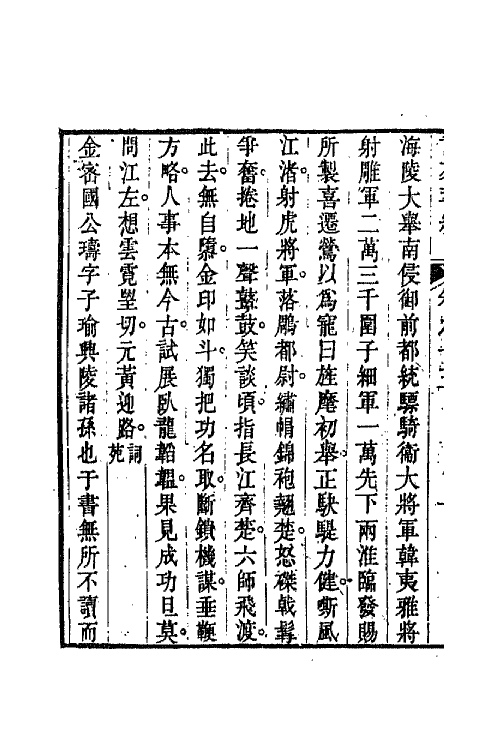 海陵大舉南侵御前都統驃騎衛大將軍韓夷雅將
射雕軍二萬三千圍子細軍一萬先下兩淮臨發賜
所製喜遷鶯以爲寵曰旌麾初舉。正駃騠力健。嘶風
江渚。射虎將軍。落鵰都尉。繡帽錦袍翹楚。怒磔戟髯
爭奮。捲地一聲鼙鼓。笑談頃。指長江齊楚。六師飛渡。
此去。無自隳。金印如斗。獨把功名取。斷鎖機謀。垂鞭
方略。人事本無今古。試展臥龍韜韞。果見成功旦莫。
問江左。想雲霓望切。元黃迎路。詞苑
金密國公璹字子瑜興陵諸孫也于書無所不讀而